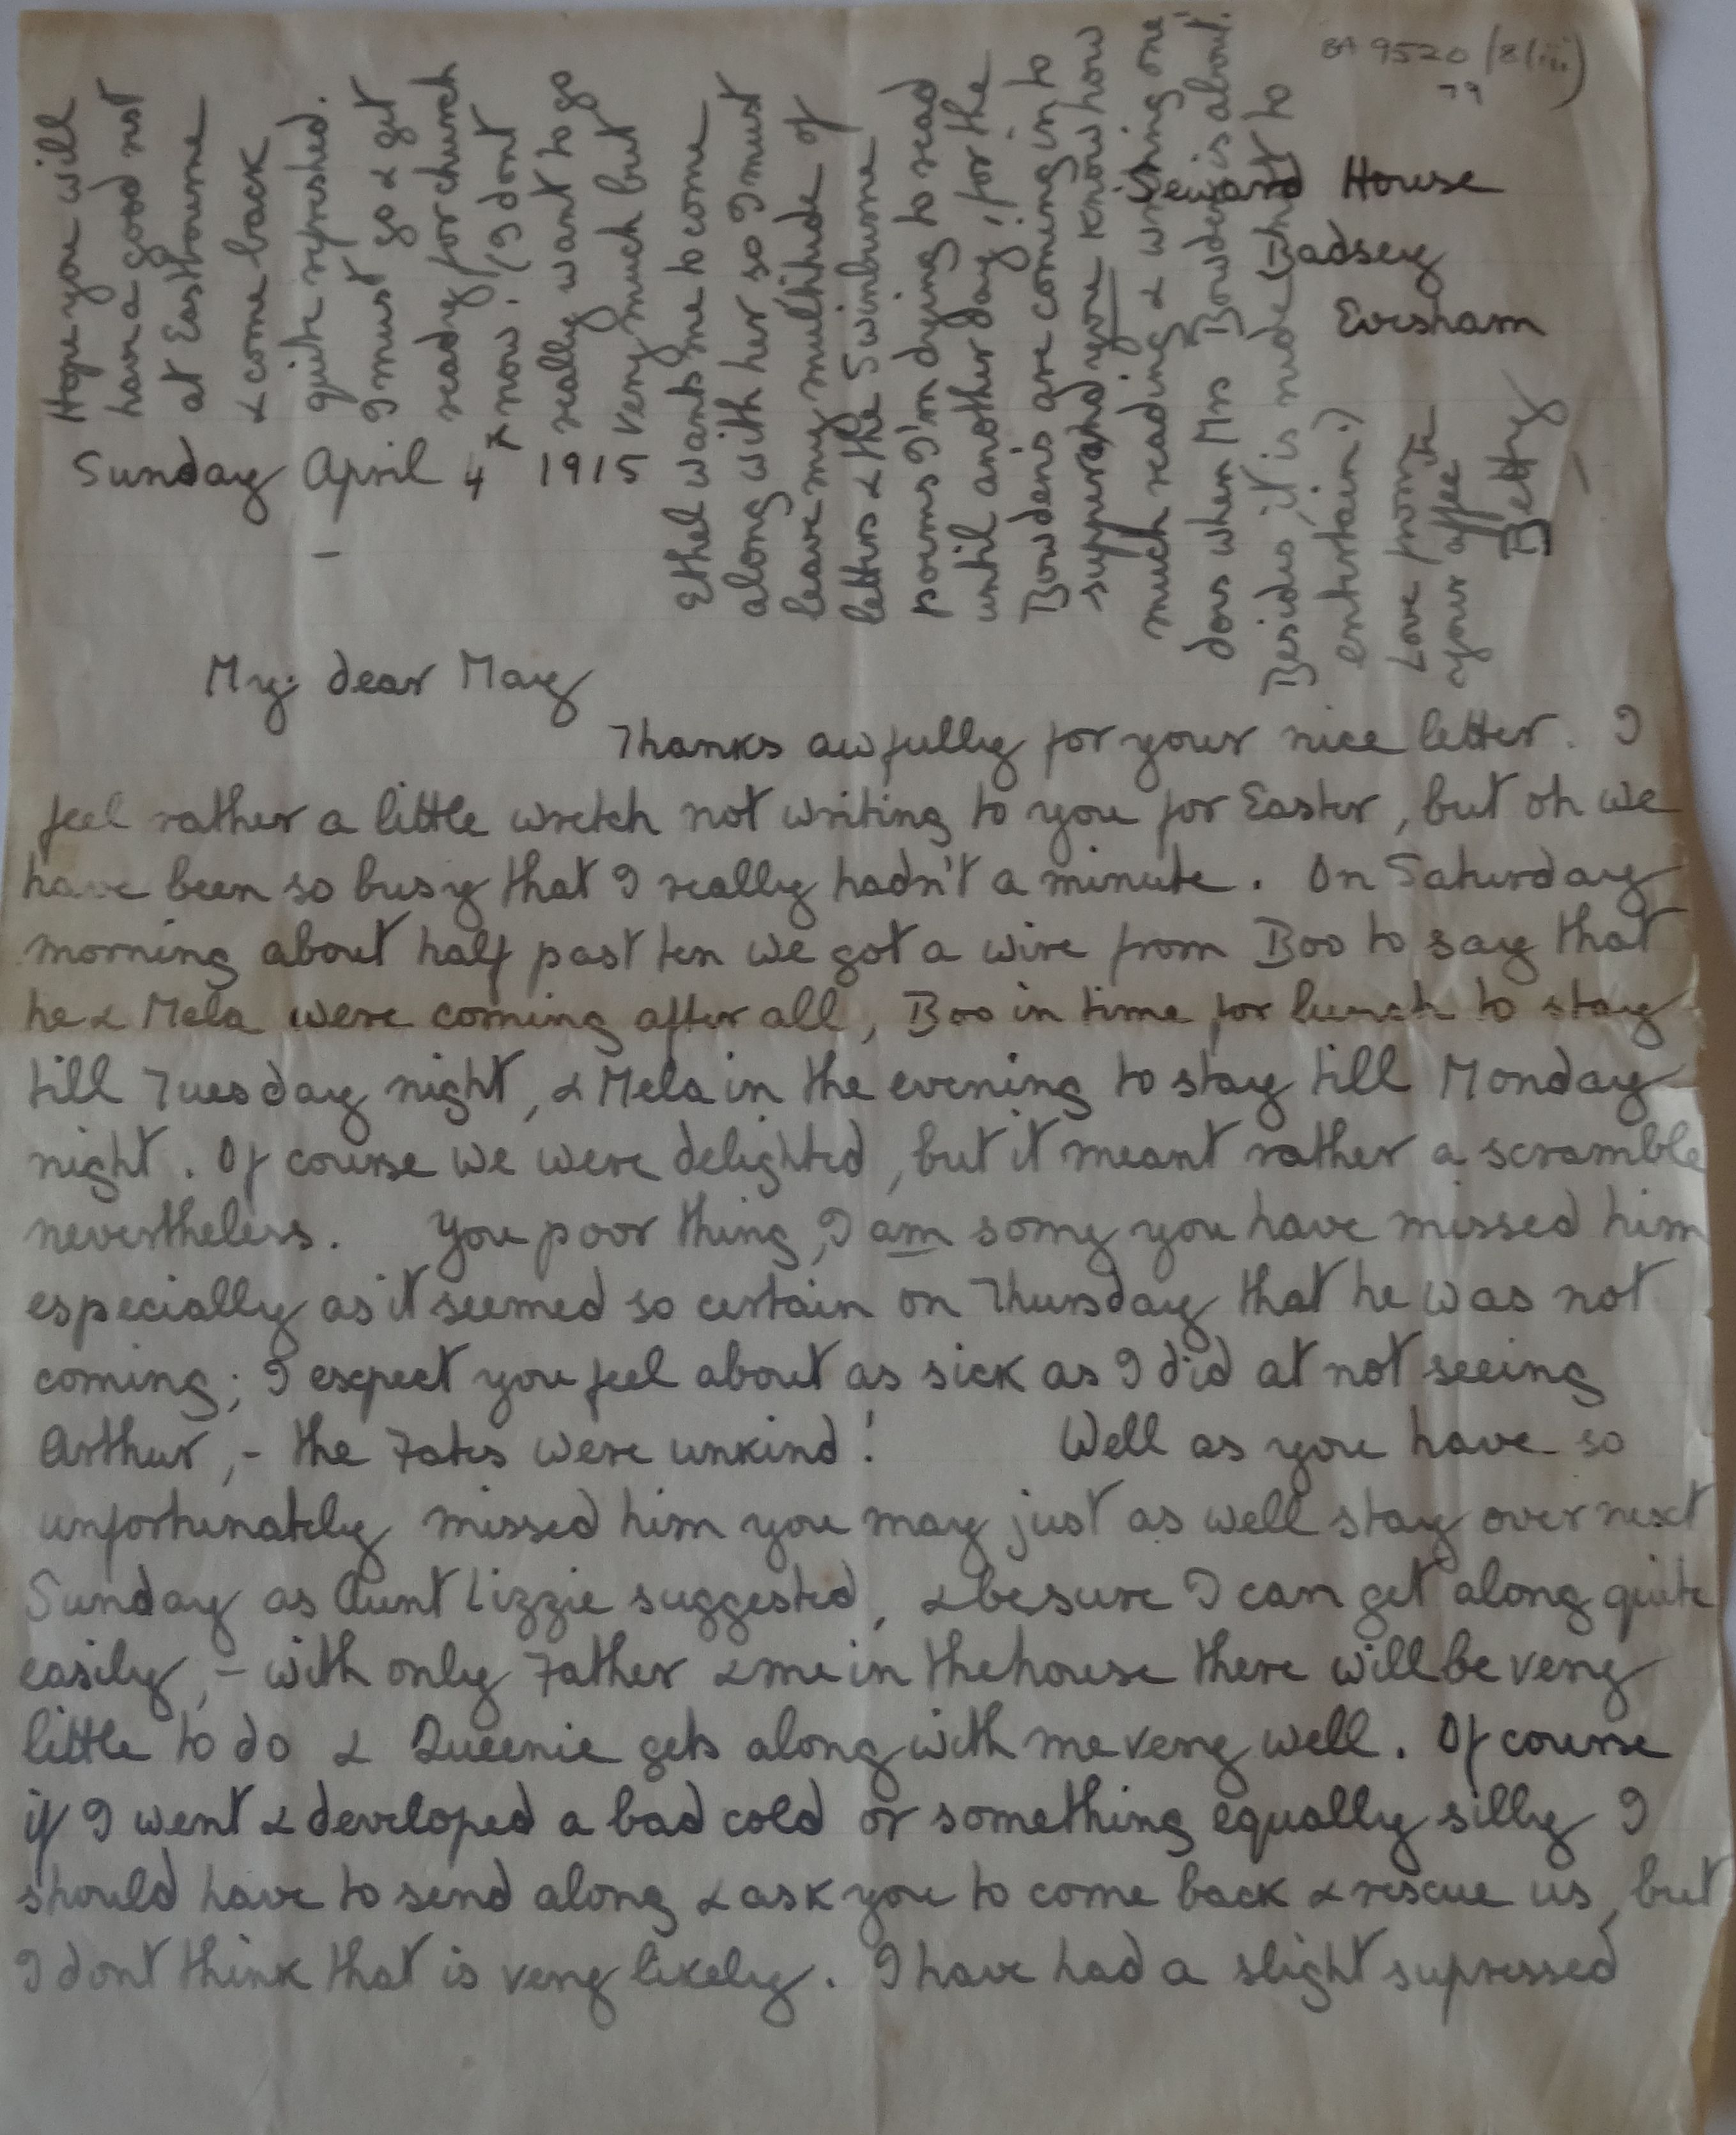 BA 9520/8(iii)
79
Seward House
Badsey
Evesham
Sunday April 4th 1915
My dear May
Thanks awfully for your nice letter. I
feel rather a little wretch not writing to you for Easter, but oh we
have been so busy that I really hadn't a minute. On Saturday
morning about half past ten we got a wire from Boo to say that
he & Mela were coming after all, Boo in time for lunch to stay
till Tuesday night, & Mela in the evening to stay till Monday
night. Of course we were delighted, but it meant rather a scramble
nevertheless. You poor thing, I am sorry you have missed him
especially as it seemed so certain on Thursday that he was not
coming; I expect you feel about as sick as I did at not seeing
Arthur, - the Fates were unkind! Well as you have so
unfortunately missed him you may just as well stay over next
Sunday as Aunt Lizzie suggested, & be sure I can get along quite
easily, - with only Father & me in the house there will be very
little to do & Queenie gets along with me very well. Of course
if I went & developed a bad cold or something equally silly I
should have to send along & ask you to come back & rescue us, but
I dont think that is very likely. I have had a slight supressed
Hope you will
have a good rest
at Eastbourne
& come back
quite refreshed.
I must go & get
ready for church
now. (I dont
really want to go
very much but
Ethel wants me to come
along with her so I must
leave my multitude of
letters & the Swinburne
poems I'm dying to read
until another day, for the
Bowdens are coming in to
supper and you know how
much reading & writing one
does when Mrs Bowden is about.
Besides, it is rude not to
entertain.)
Love from
your affecte
Betty